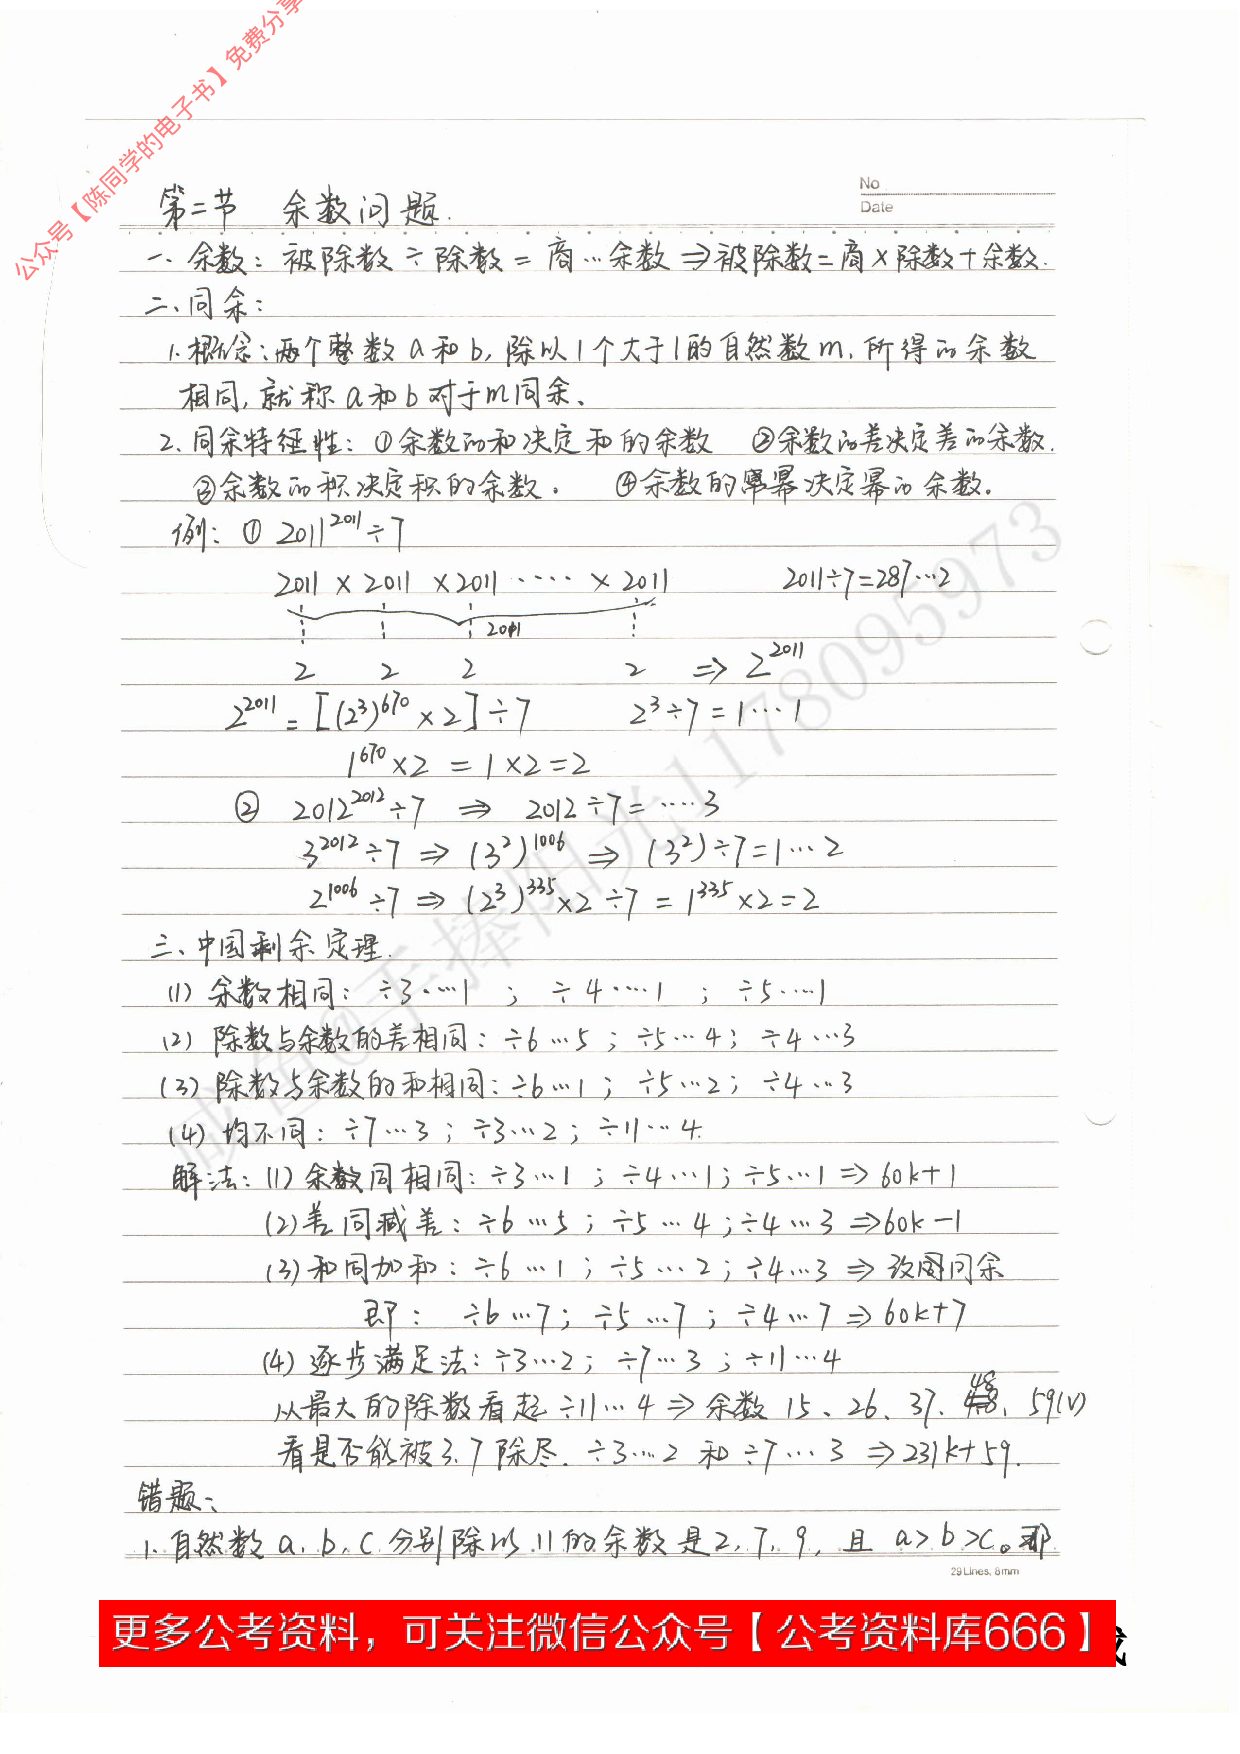 公众号【陈同学的电子书】免费分享
No
Date
第二节 余数问题.
一、余数：被除数÷除数＝商…余数⇒被除数＝商×除数＋余数.
二、同余：
1.概念：两个整数a和b,除以1个大于1的自然数m,所得的余数
相同,就称a和b对于m同余、
2.同余特征性：①余数的和决定和的余数 ②余数的差决定差的余数.
③余数的积决定积的余数. ④余数的幂决定幂的余数.
例：① 2011^2011÷7
2011×2011×2011····×2011 2011÷7=287…2
2011
2 2 2 2 ⇒ 2^2011
2^2011=[(2^3)^670×2]÷7 2^3÷7=1…1
1^670×2=1×2=2
② 2012^2012÷7 ⇒ 2012÷7=····3
3^2012÷7 ⇒ (3^2)^1006 ⇒ (3^2)÷7=1…2
2^1006÷7 ⇒ (2^3)^335×2÷7=1^335×2=2
三、中国剩余定理.
(1) 余数相同：÷3····1 ; ÷4····1 ; ÷5····1
(2) 除数与余数的差相同：÷6…5 ; ÷5…4 ; ÷4…3
(3) 除数与余数的和相同：÷6…1 ; ÷5…2 ; ÷4…3
(4) 均不同：÷7…3 ; ÷3…2 ; ÷11…4.
解法：(1) 余数同相同：÷3…1 ; ÷4…1 ; ÷5…1 ⇒ 60k+1
(2) 差同减差：÷6…5 ; ÷5…4 ; ÷4…3 ⇒ 60k-1
(3) 和同加和：÷6…1 ; ÷5…2 ; ÷4…3 ⇒ 改图同余
即：÷6…7 ; ÷5…7 ; ÷4…7 ⇒ 60k+7
(4) 逐步满足法：÷3…2 ; ÷7…3 ; ÷11…4
48
从最大的除数看起÷11…4 ⇒ 余数 15、26、37、48、59(√)
看是否能被3.7除尽. ÷3…2 和 ÷7…3 ⇒ 231k+59.
错题：
1.自然数a,b,c分别除以11的余数是2,7,9, 且a>b>c。那
29 Lines, 8mm
咸鱼@手捧阳光1178095973
更多公考资料，可关注微信公众号【公考资料库666】